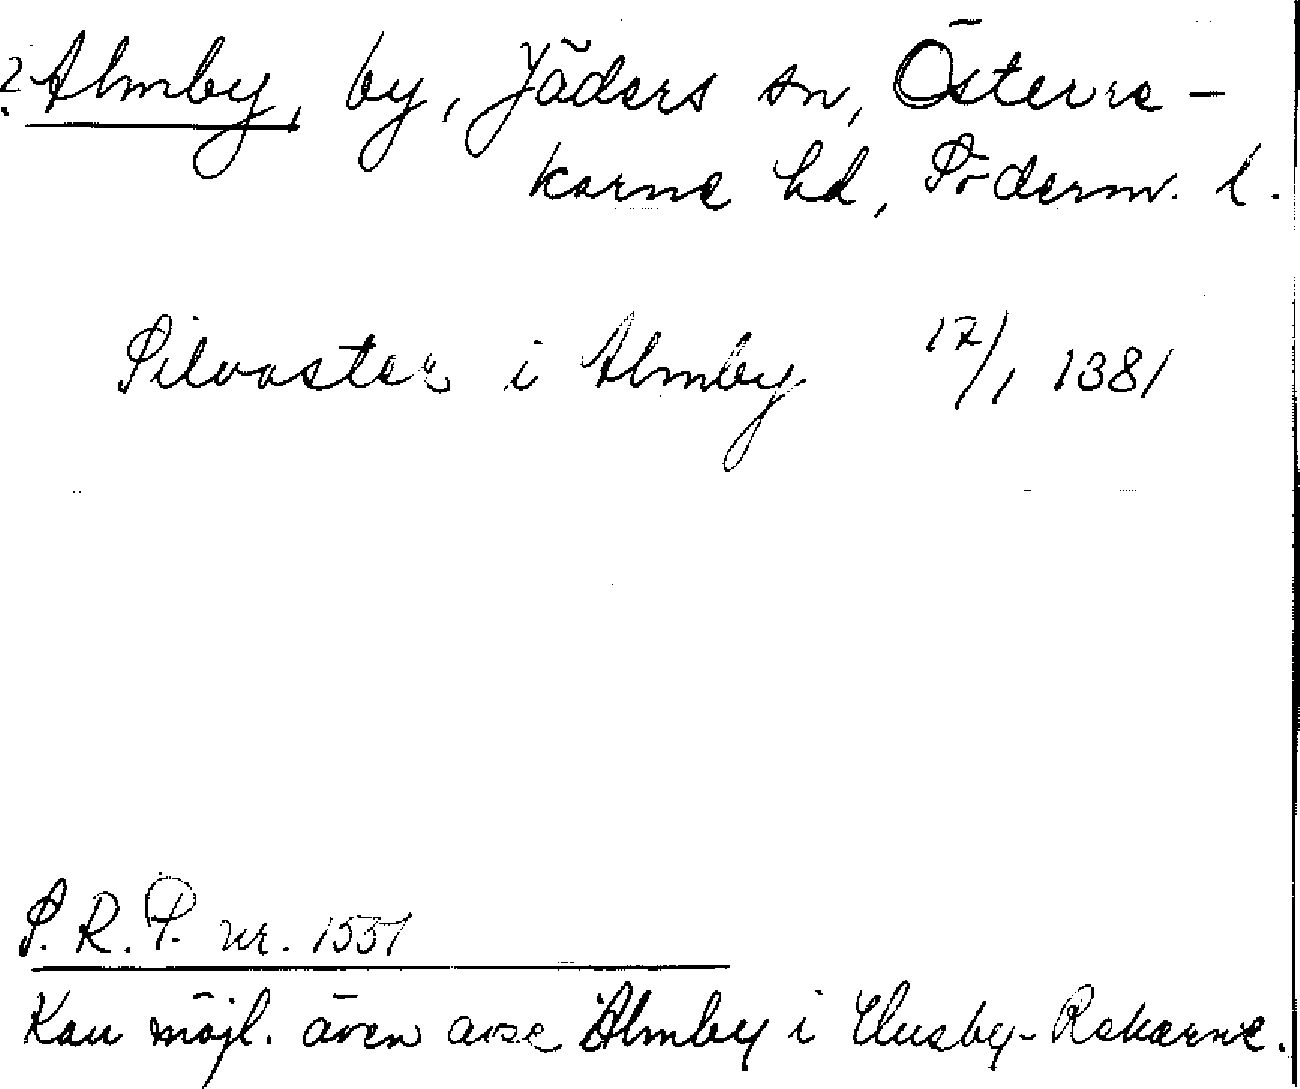 ? Almby, by, Jäders sn, Österre-
karne hd, Söderm. l.
Silvaster i Almby 17/1 1381
S. R. P. nr. 1551
Kan möjl. även avse Älmby i Husby-Rekarne.